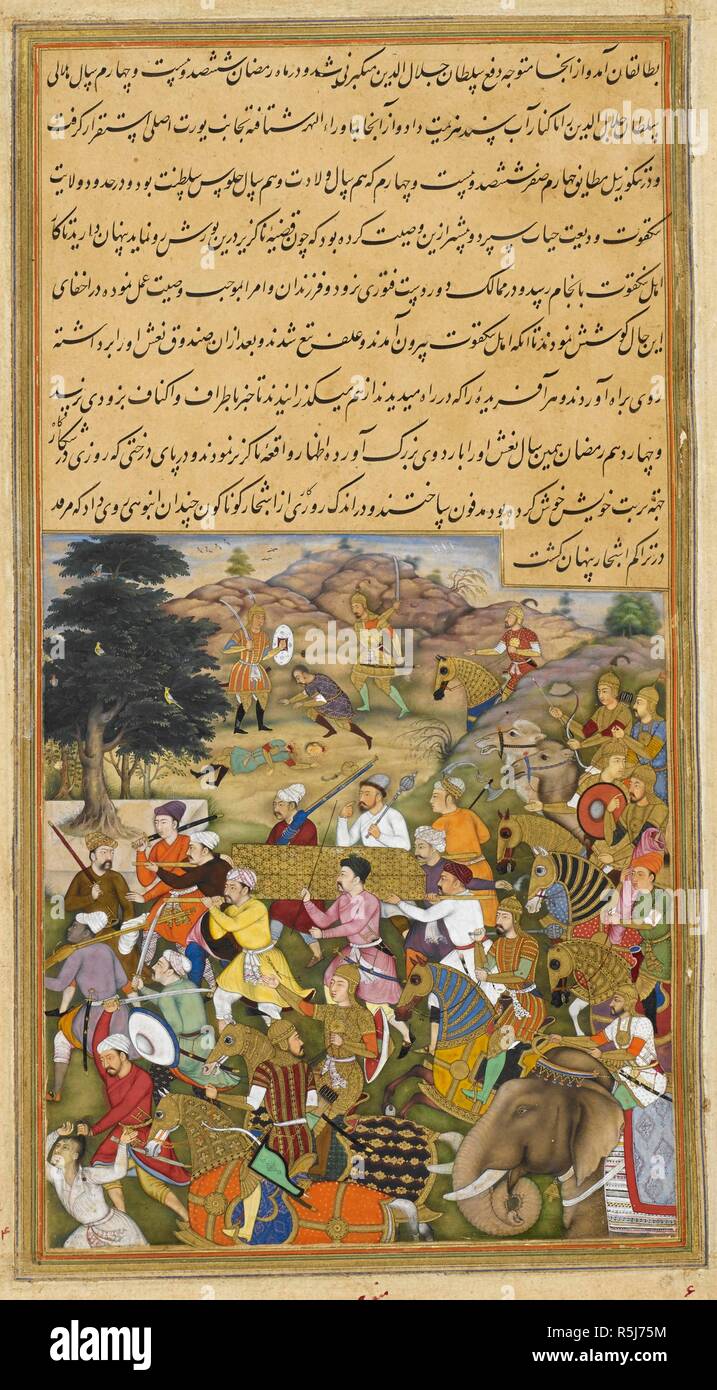 بطالقان آمد و از آنجا متوجه دفع سلطان جلال الدین منکبرنی شد و در ماه رمضان ششصد و بیست و چهارم سال هلالی
سلطان جلال الدین را بر کنار آب سند هزیمت داد و از آنجا بماوراءالنهر شتافته بجانب یورت اصلی استقرار گرفت
و در تنکوزییل مطابق چهارم صفر ششصد و بیست و چهارم که هم سال ولادت و هم سال جلوس سلطنت بود در حدود ولایت
تنکقوت ودیعت حیات سپرد و پیشتر ازین وصیت کرده بود که چون قضیهٔ ناگزیر درین یورش رو نماید پنهان دارید تا کار
اهل تنکقوت بانجام رسد و در ممالک دوردست فتوری نرود و فرزندان و امرا بموجب وصیت عمل نموده در اخفای
این حال کوشش نمودند تا آنکه اهل تنکقوت بیرون آمدند و علف تیغ شدند و بعد ازان صندوق نعش او را برداشته
روی براه آوردند و هر آفریدهٔ را که در راه میدیدند از هم میگذرانیدند تا خبر باطراف و اکناف بزودی نرسد
و چهاردهم رمضان همین سال نعش او را باردوی بزرگ آورده اظهار واقعهٔ ناگزیر نمودند و در پای درختی که روزی در شکارگاه
جهة تربت خویش خوش کرده بود مدفون ساختند و در اندک روزگاری از اشجار گوناگون چندان انبوهی روی داد که مرقد
در تراکم اشجار پنهان گشت
alamy
alamy
Image ID: R5J75M
www.alamy.com